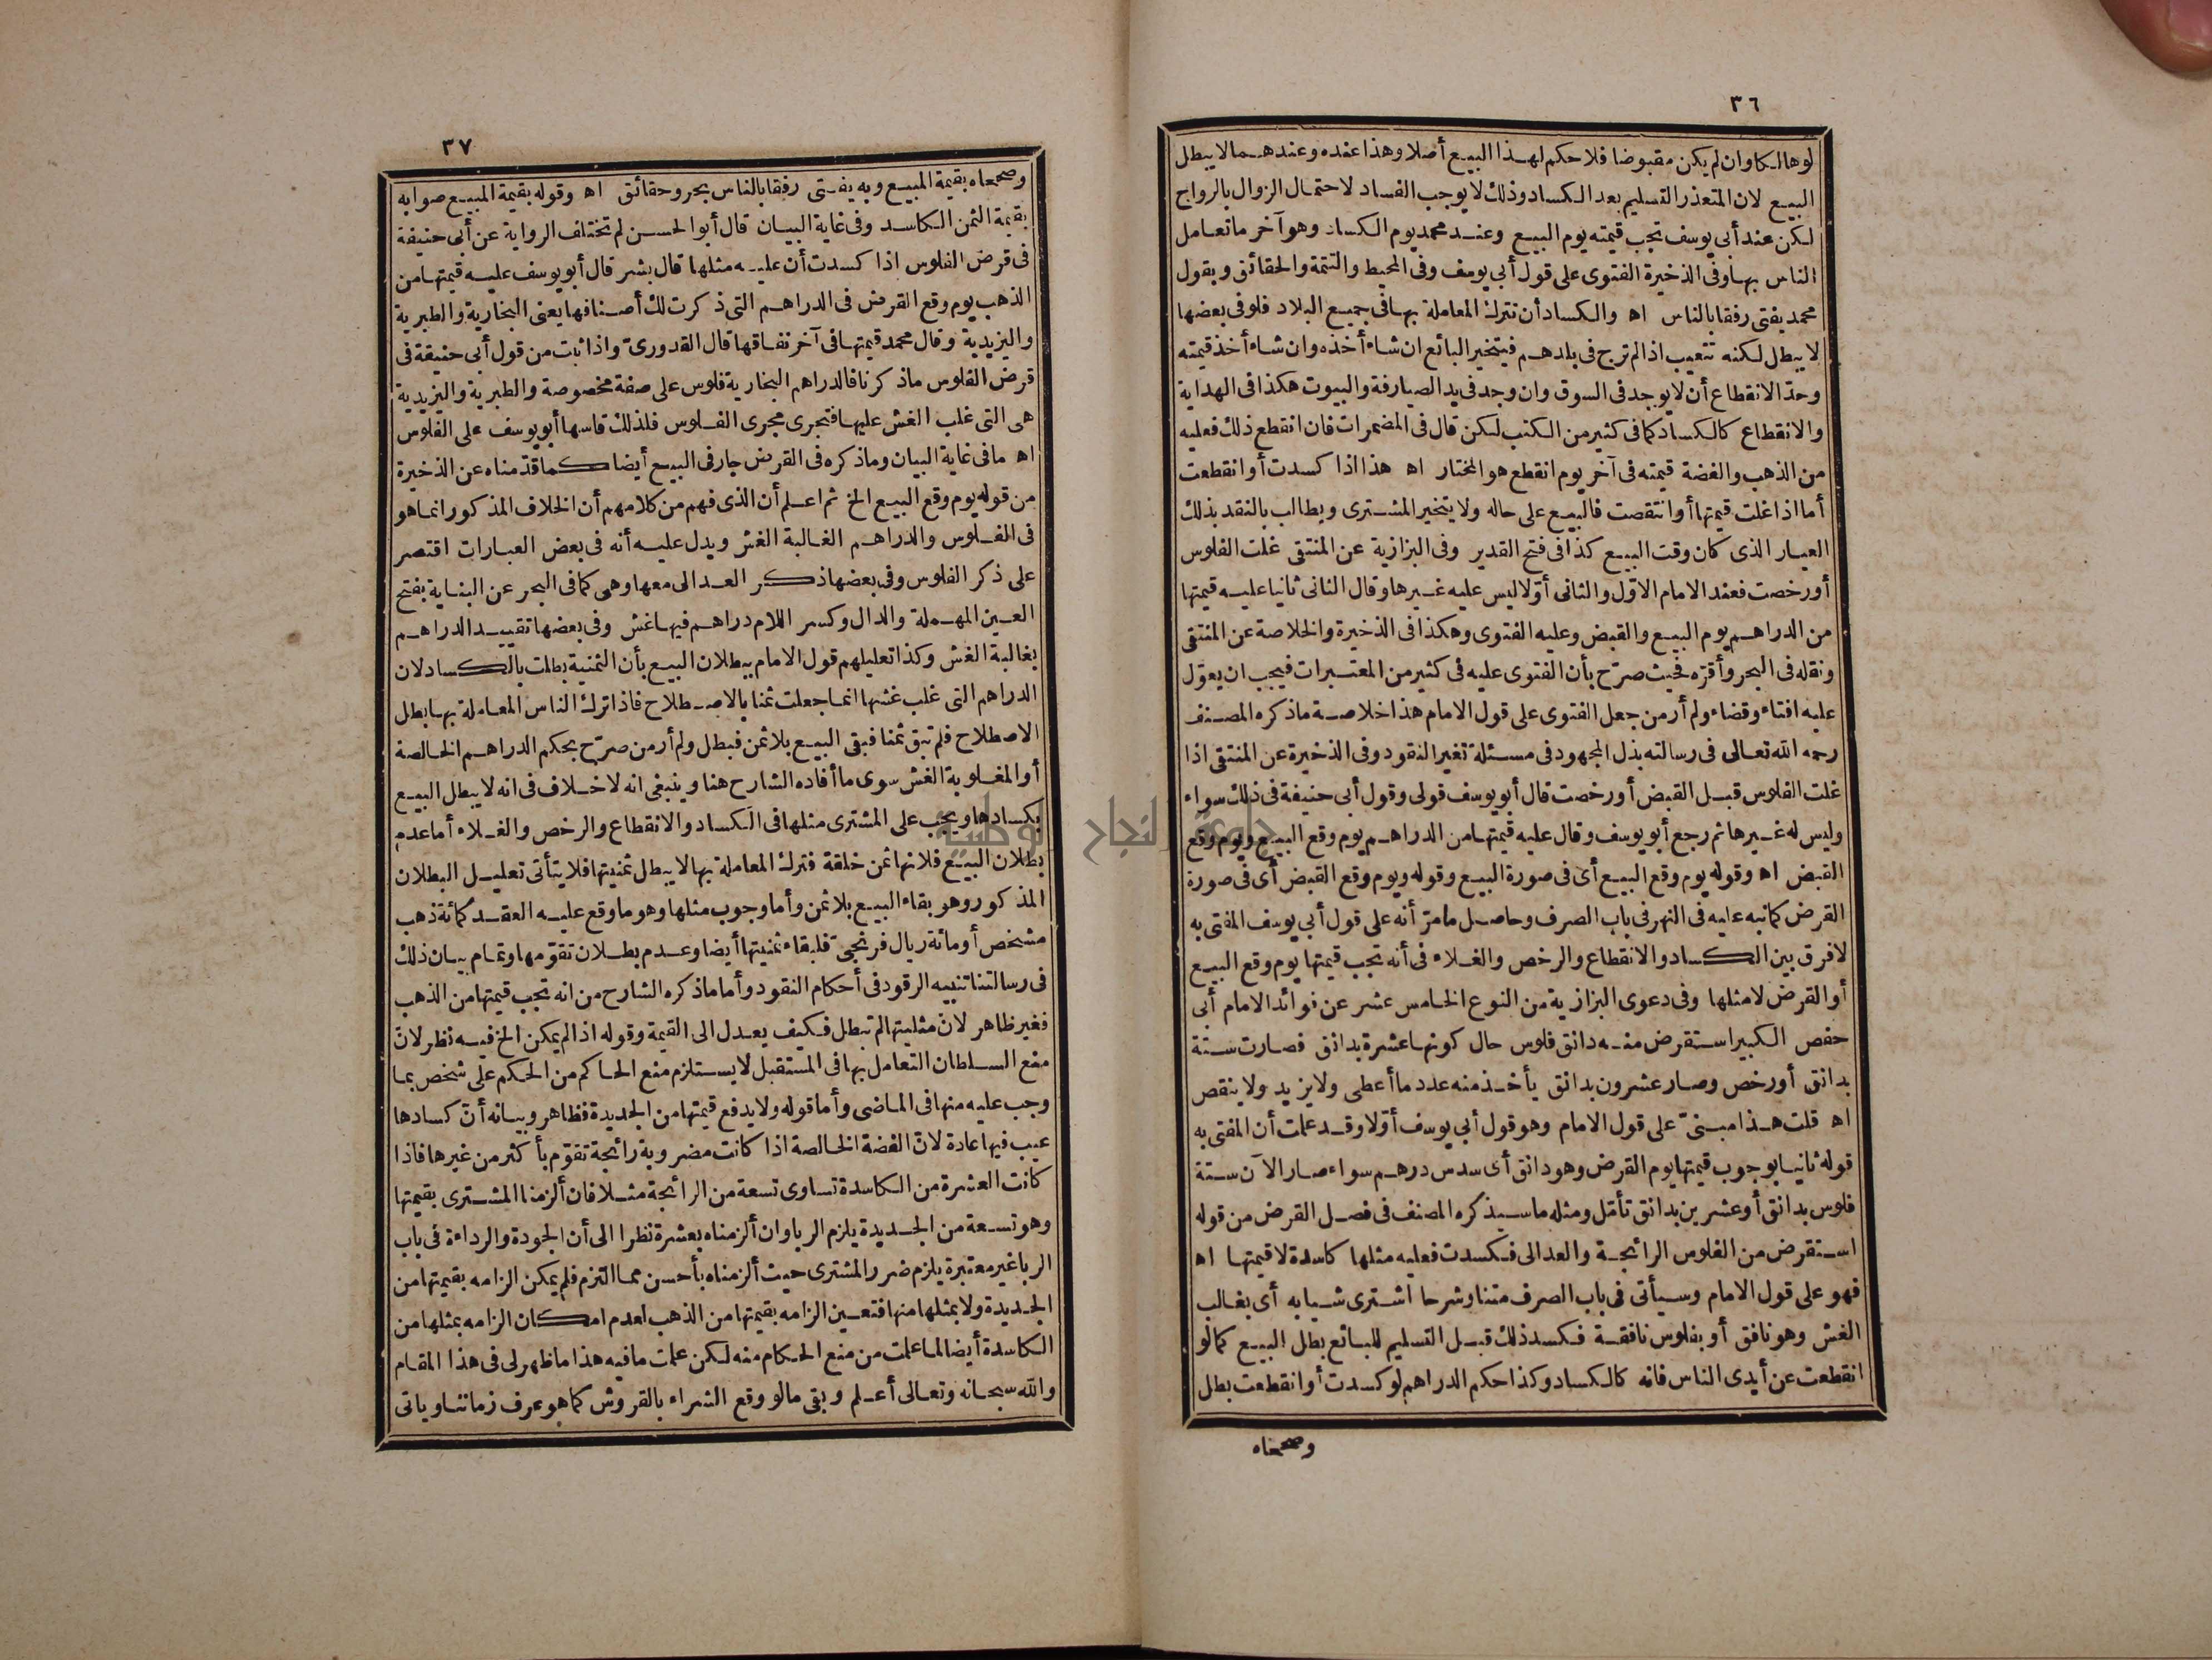 ٣٦
لو هالكا وان لم يكن مقبوضا فلا حكم لهذا البيع أصلا وهذا عنده وعندهما لا يبطل
البيع لان المتعذر التسليم بعد الكساد وذلك لا يوجب الفساد لاحتمال الزوال بالرواج
لكن عند أبي يوسف تجب قيمته يوم البيع وعند محمد يوم الكساد وهو آخر ما تعامل
الناس بها وفي الذخيرة الفتوى على قول أبي يوسف وفي المحيط والتتمة والحقائق وبقول
محمد يفتى رفقا بالناس اه والكساد أن تترك المعاملة بها في جميع البلاد فلو في بعضها
لا يبطل لكنه تتعيب اذا لم ترج في بلدهم فيتخير البائع ان شاء أخذه وان شاء أخذ قيمته
وحد الانقطاع أن لا يوجد في السوق وان وجد في يد الصيارفة والبيوت هكذا في الهداية
والانقطاع كالكساد كما في كثير من الكتب لكن قال في المضمرات فان انقطع ذلك فعليه
من الذهب والفضة قيمته في آخر يوم انقطع هو المختار اه هذا اذا كسدت أو انقطعت
أما اذا غلت قيمتها أو انتقصت فالبيع على حاله ولا يتخير المشترى ويطالب بالنقد بذلك
العيار الذى كان وقت البيع كذا في فتح القدير وفي البزازية عن المنتقى غلت الفلوس
أو رخصت فعند الامام الاوّل والثانى أوّلا ليس عليه غيرها وقال الثانى ثانيا عليه قيمتها
من الدراهم يوم البيع والقبض وعليه الفتوى وهكذا في الذخيرة والخلاصة عن المنتقى
ونقله في البحر وأقرّه فحيث صرّح بأن الفتوى عليه في كثير من المعتبرات فيجب ان يعوّل
عليه افتاء وقضاء ولم أر من جعل الفتوى على قول الامام هذا خلاصة ما ذكره المصنف
رحمه الله تعالى في رسالته بذل المجهود في مسئلة تغير النقود وفي الذخيرة عن المنتقى اذا
غلت الفلوس قبل القبض أو رخصت قال أبو يوسف قولى وقول أبي حنيفة في ذلك سواء
وليس له غيرها ثم رجع أبو يوسف وقال عليه قيمتها من الدراهم يوم وقع البيع ويوم وقع
القبض اه وقوله يوم وقع البيع أى في صورة البيع وقوله ويوم وقع القبض أى في صورة
القرض كما نبه عليه في النهر في باب الصرف وحاصل ما مرّ أنه على قول أبي يوسف المفتى به
لا فرق بين الكساد والانقطاع والرخص والغلاء في أنه تجب قيمتها يوم وقع البيع
أو القرض لا مثلها وفي دعوى البزازية من النوع الخامس عشر عن فوائد الامام أبي
حفص الكبير استقرض منه دانق فلوس حال كونها عشرة بدانق فصارت ستة
بدانق أو رخص وصار عشرون بدانق يأخذ منه عدد ما أعطى ولا يزيد ولا ينقص
اه قلت هذا مبنىّ على قول الامام وهو قول أبي يوسف أوّلا وقد علمت أن المفتى به
قوله ثانيا بوجوب قيمتها يوم القرض وهو دانق أى سدس درهم سواء صار الآن ستة
فلوس بدانق أو عشرين بدانق تأمّل ومثله ما سيذكره المصنف في فصل القرض من قوله
استقرض من الفلوس الرائجة والعدالى فكسدت فعليه مثلها كاسدة لا قيمتها اه
فهو على قول الامام وسيأتى في باب الصرف متنا وشرحا اشترى شيأ به أى بغالب
الغش وهو نافق أو بفلوس نافقة فكسد ذلك قبل التسليم للبائع بطل البيع كما لو
انقطعت عن أيدى الناس فانه كالكساد وكذا حكم الدراهم لو كسدت أو انقطعت بطل
وصححاه
٣٧
وصححاه بقيمة المبيع وبه يفتى رفقا بالناس بحر وحقائق اه وقوله بقيمة المبيع صوابه
بقيمة الثمن الكاسد وفي غاية البيان قال أبو الحسن لم تختلف الرواية عن أبي حنيفة
في قرض الفلوس اذا كسدت أن عليه مثلها قال بشر قال أبو يوسف عليه قيمتها من
الذهب يوم وقع القرض في الدراهم التى ذكرت لك أصنافها يعنى البخارية والطبرية
واليزيدية وقال محمد قيمتها في آخر نفاقها قال القدورىّ واذا ثبت من قول أبي حنيفة في
قرض الفلوس ما ذكرنا فالدراهم البخارية فلوس على صفة مخصوصة والطبرية واليزيدية
هى التى غلب الغش عليها فتجرى مجرى الفلوس فلذلك قاسها أبو يوسف على الفلوس
اه ما في غاية البيان وما ذكره في القرض جار في البيع أيضا كما قدّمناه عن الذخيرة
من قوله يوم وقع البيع الخ ثم اعلم أن الذى فهم من كلامهم أن الخلاف المذكور انما هو
في الفلوس والدراهم الغالبة الغش ويدل عليه أنه في بعض العبارات اقتصر
على ذكر الفلوس وفي بعضها ذكر العدالى معها وهى كما في البحر عن البناية بفتح
العين المهملة والدال وكسر اللام دراهم فيها غش وفي بعضها تقييد الدراهم
بغالبة الغش وكذا تعليلهم قول الامام ببطلان البيع بأن الثمنية بطلت بالكساد لان
الدراهم التى غلب غشها انما جعلت ثمنا بالاصطلاح فاذا ترك الناس المعاملة بها بطل
الاصطلاح فلم تبق ثمنا فبقى البيع بلا ثمن فبطل ولم أر من صرّح بحكم الدراهم الخالصة
أو المغلوبة الغش سوى ما أفاده الشارح هنا وينبغى انه لا خلاف في انه لا يبطل البيع
بكسادها ويجب على المشترى مثلها في الكساد والانقطاع والرخص والغلاء أما عدم
بطلان البيع فلانها ثمن خلقة فترك المعاملة بها لا يبطل ثمنيتها فلا يتأتى تعليل البطلان
المذكور وهو بقاء البيع بلا ثمن وأما وجوب مثلها وهو ما وقع عليه العقد كمائة ذهب
مشخص أو مائة ريال فرنجىّ فلبقاء ثمنيتها أيضا وعدم بطلان تقوّمها وتمام بيان ذلك
في رسالتنا تنبيه الرقود في أحكام النقود وأما ما ذكره الشارح من انه تجب قيمتها من الذهب
فغير ظاهر لانّ مثليتها لم تبطل فكيف يعدل الى القيمة وقوله اذا لم يمكن الخ فيه نظر لانّ
منع السلطان التعامل بها في المستقبل لا يستلزم منع الحاكم من الحكم على شخص بما
وجب عليه منها في الماضى وأما قوله ولا يدفع قيمتها من الجديدة فظاهر وبيانه أنّ كسادها
عيب فيها عادة لانّ الفضة الخالصة اذا كانت مضروبة رائجة تقوّم بأكثر من غيرها فاذا
كانت العشرة من الكاسدة تساوى تسعة من الرائجة مثلا فان ألزمنا المشترى بقيمتها
وهو تسعة من الجديدة يلزم الربا وان ألزمناه بعشرة نظرا الى أن الجودة والرداءة في باب
الربا غير معتبرة يلزم ضرر المشترى حيث ألزمناه بأحسن مما التزم فلم يمكن الزامه بقيمتها من
الجديدة ولا بمثلها منها فتعين الزامه بقيمتها من الذهب لعدم امكان الزامه بمثلها من
الكاسدة أيضا لما علمت من منع الحكام منه لكن علمت ما فيه هذا ما ظهر لى في هذا المقام
والله سبحانه وتعالى أعلم وبقى ما لو وقع الشراء بالقروش كما هو عرف زماننا ويأتى
جامعة النجاح الوطنية